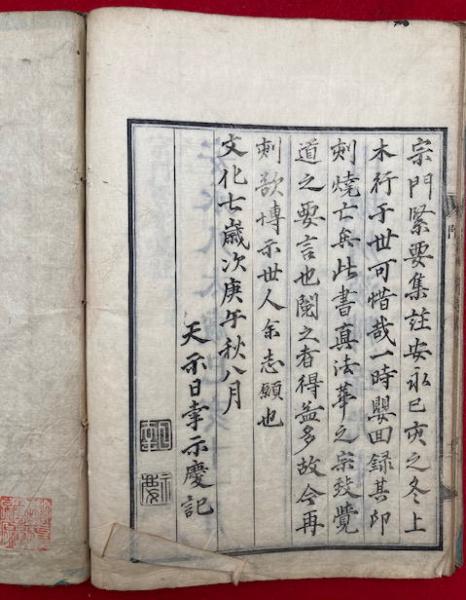 宗門緊要集註安永己亥之冬上
木行于世可惜哉一時嬰回録其印
刻燒亡矣此書真法華之宗致覺
道之要言也閱之者得益多故今再
刻欲博示世人余志願也
文化七歳次庚午秋八月
天示日掌示慶記